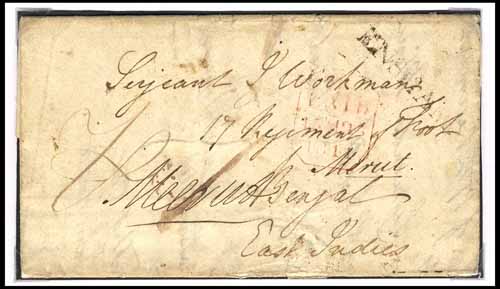 Serjeant J Workman
17 Regiment Foot
Merut.
Bengal
East Indies